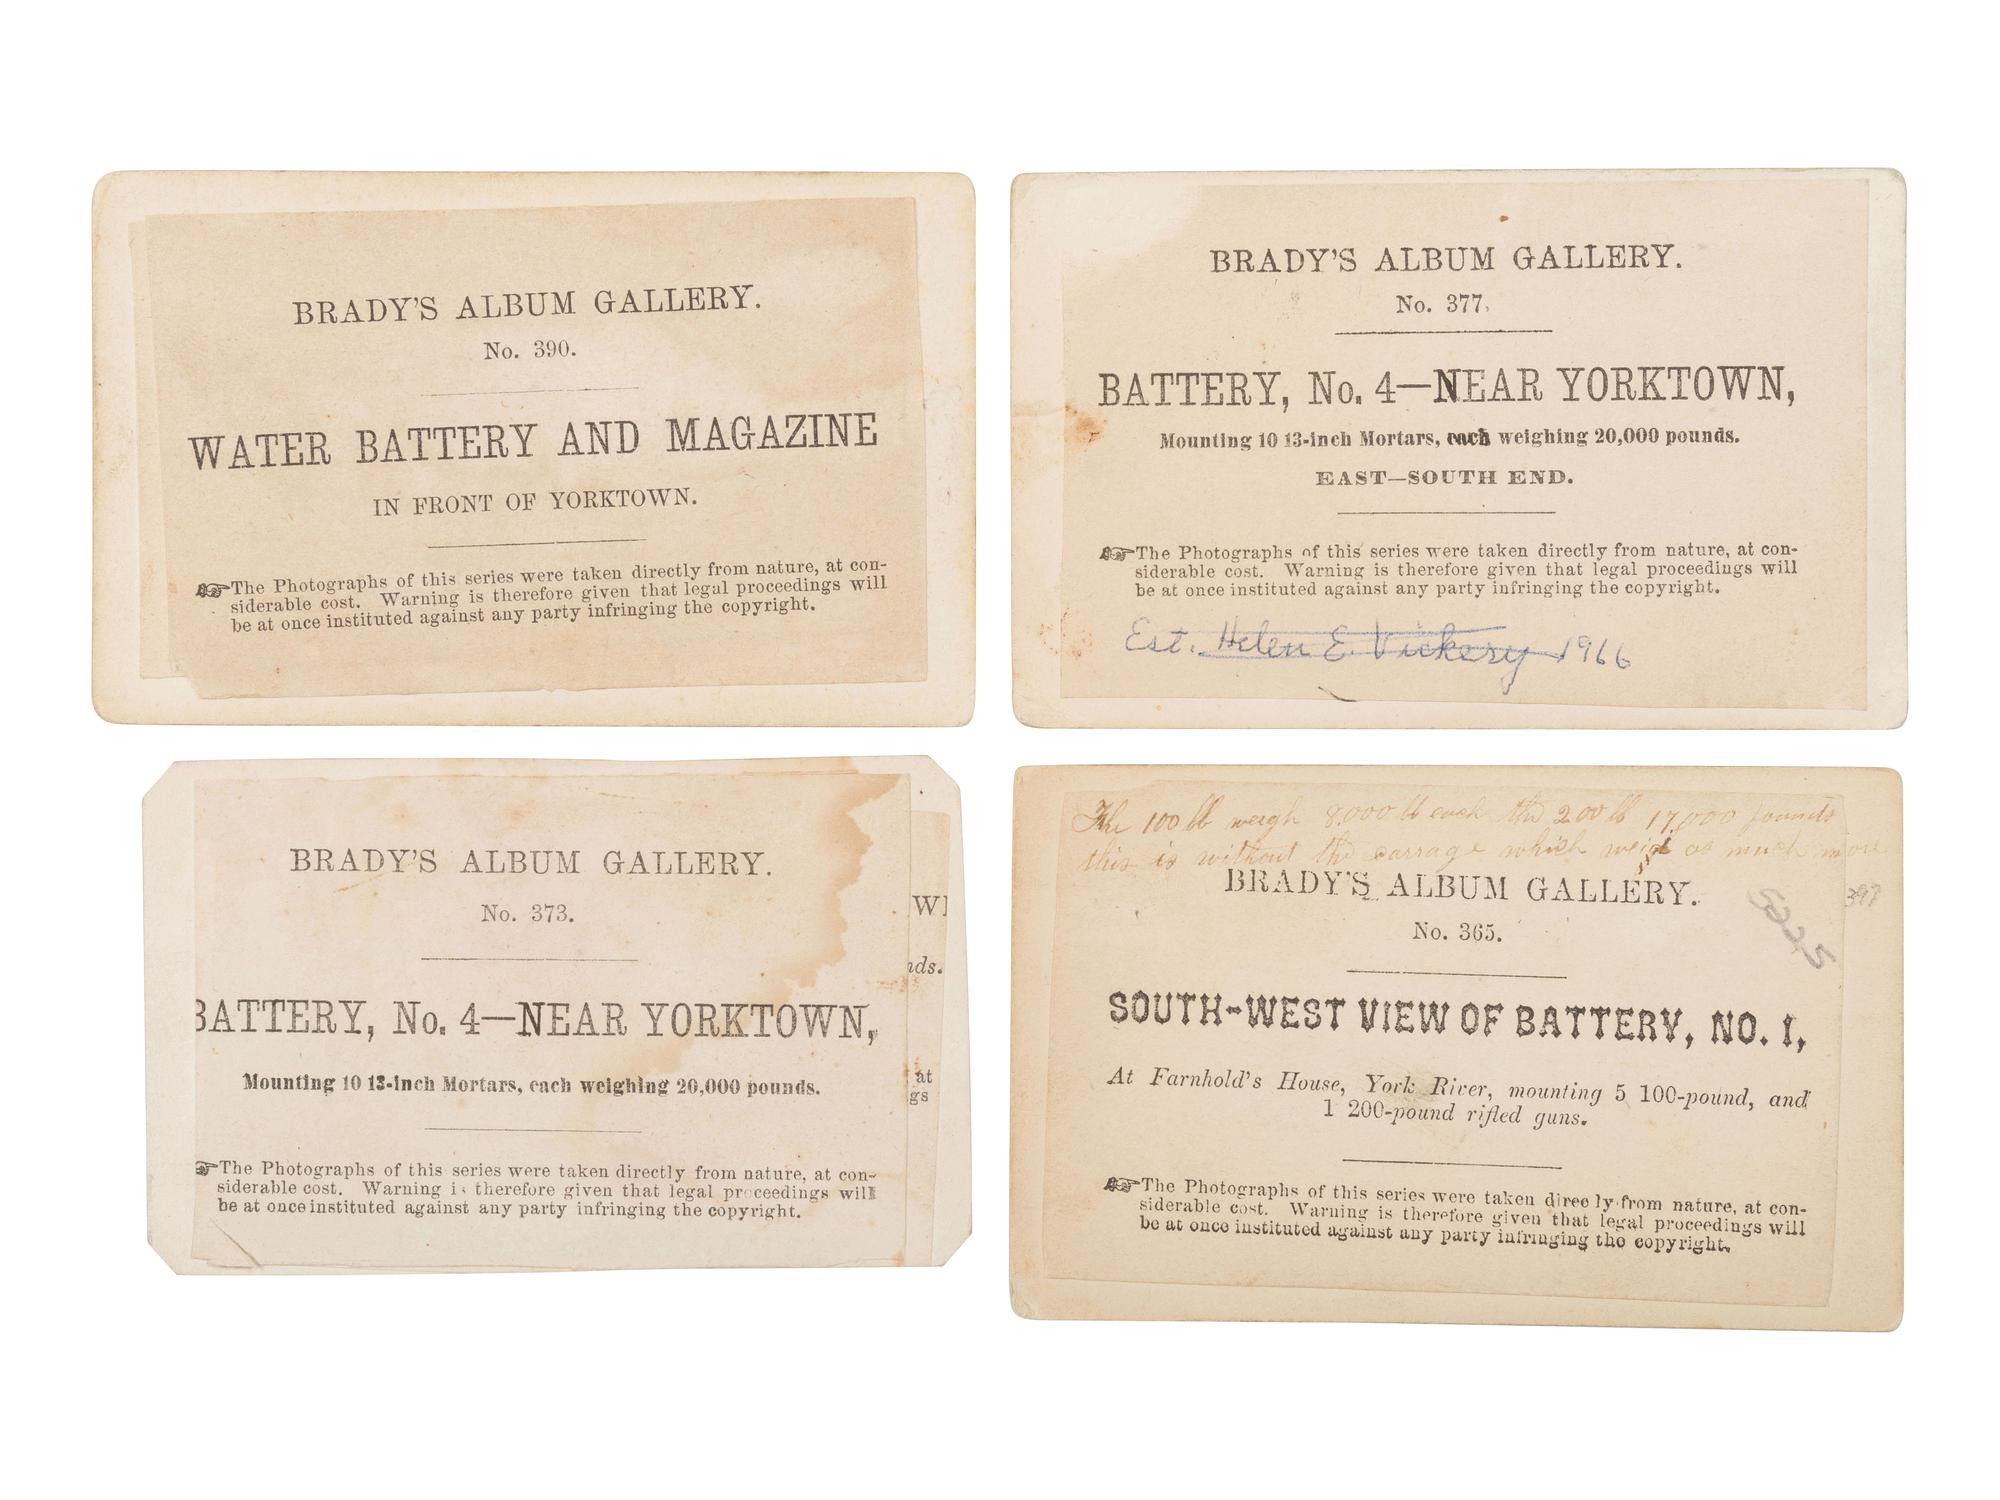 BRADY'S ALBUM GALLERY.
No. 390.
WATER BATTERY AND MAGAZINE
IN FRONT OF YORKTOWN.
The Photographs of this series were taken directly from nature, at con-
siderable cost. Warning is therefore given that legal proceedings will
be at once instituted against any party infringing the copyright.
BRADY'S ALBUM GALLERY.
No. 377.
BATTERY, No. 4—NEAR YORKTOWN,
Mounting 10 13-inch Mortars, each weighing 20,000 pounds.
EAST—SOUTH END.
The Photographs of this series were taken directly from nature, at con-
siderable cost. Warning is therefore given that legal proceedings will
be at once instituted against any party infringing the copyright.
Est. Helen E. Vickery 1966
BRADY'S ALBUM GALLERY.
No. 373.
BATTERY, No. 4—NEAR YORKTOWN,
Mounting 10 13-inch Mortars, each weighing 20,000 pounds.
The Photographs of this series were taken directly from nature, at con-
siderable cost. Warning is therefore given that legal proceedings will
be at once instituted against any party infringing the copyright.
nds.
at
gs
The 100 lb weigh 8,000 lb each the 200 lb 17,000 pounds
this is without the carrage which weigh as much more
BRADY'S ALBUM GALLERY.
397
No. 365.
SOUTH-WEST VIEW OF BATTERY, NO. 1,
At Farnhold's House, York River, mounting 5 100-pound, and
1 200-pound rifled guns.
The Photographs of this series were taken direc ly from nature, at con-
siderable cost. Warning is therefore given that legal proceedings will
be at once instituted against any party infringing the copyright.